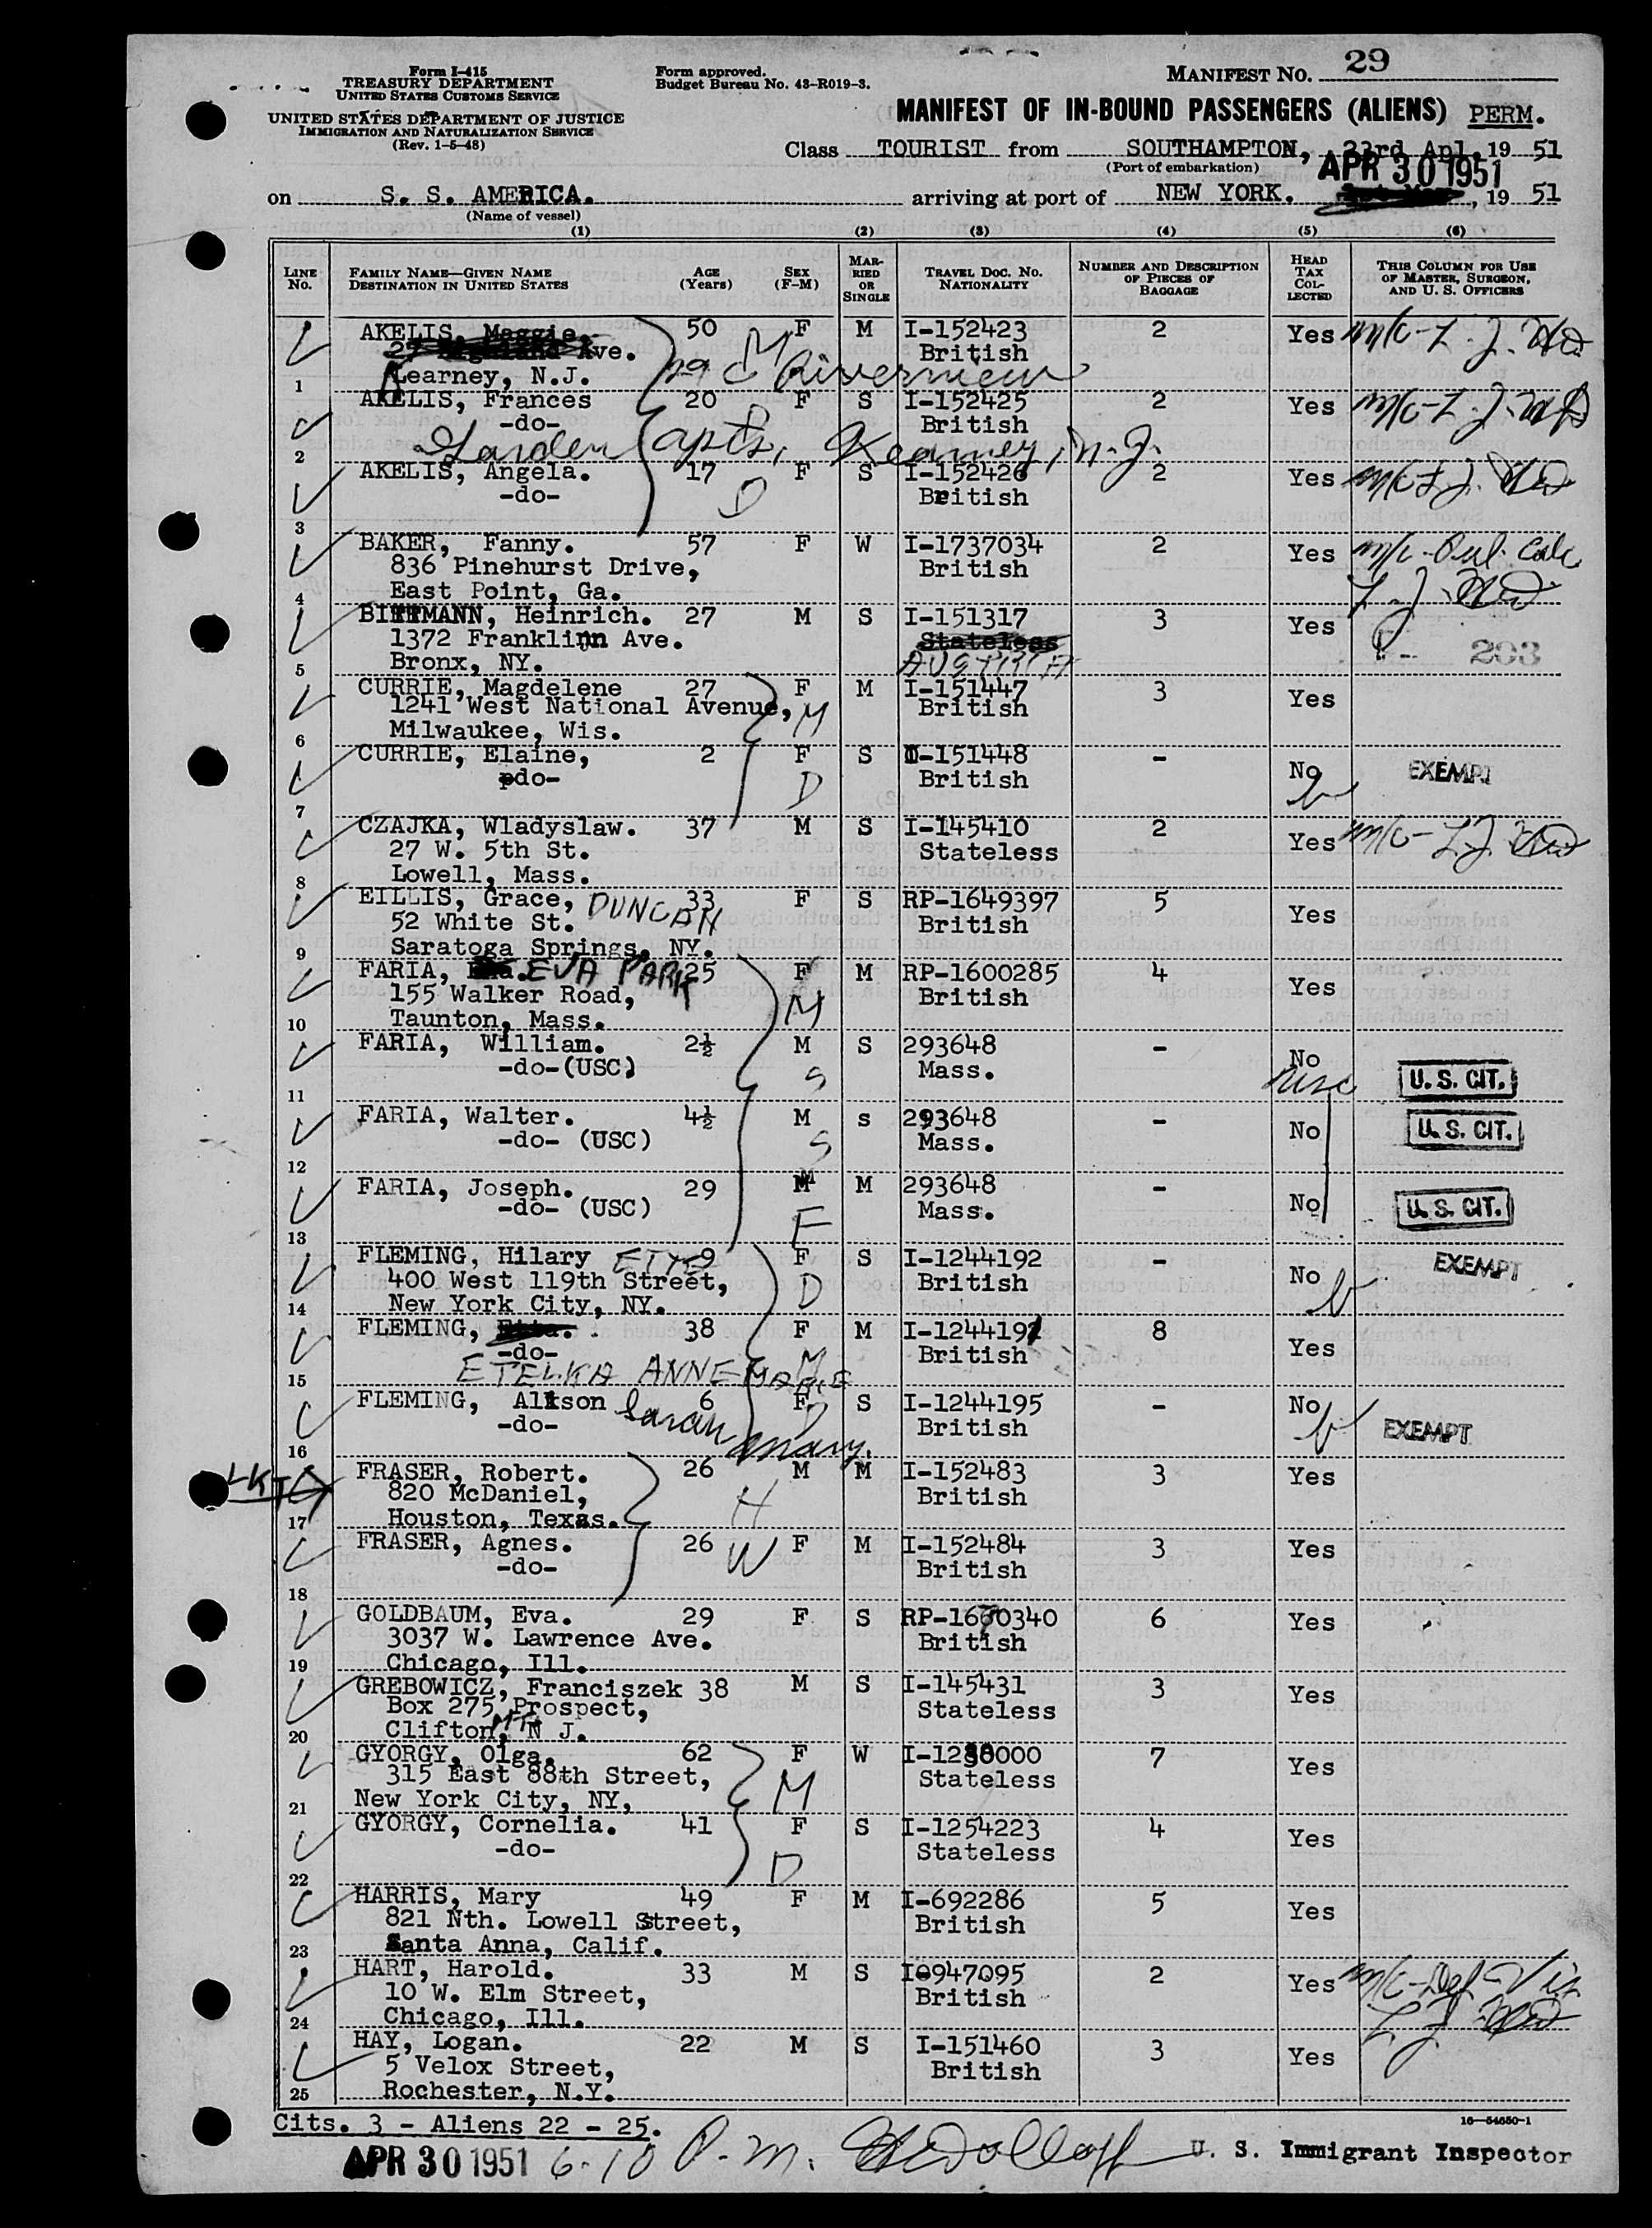 Form I-415
TREASURY DEPARTMENT
UNITED STATES CUSTOMS SERVICE
UNITED STATES DEPARTMENT OF JUSTICE
IMMIGRATION AND NATURALIZATION SERVICE
(Rev. 1-5-48)
Form approved.
Budget Bureau No. 43-R019-3.
MANIFEST NO. 29
MANIFEST OF IN-BOUND PASSENGERS (ALIENS) PERM.
Class TOURIST from SOUTHAMPTON, 23rd Apl, 19 51
(Port of embarkation)
APR 30 1951
on S. S. AMERICA. arriving at port of NEW YORK. , 19 51
(Name of vessel)
(1) (2) (3) (4) (5) (6)
LINE No. FAMILY NAME—GIVEN NAME DESTINATION IN UNITED STATES AGE (Years) SEX (F-M) MARRIED OR SINGLE TRAVEL DOC. NO. NATIONALITY NUMBER AND DESCRIPTION OF PIECES OF BAGGAGE HEAD TAX COLLECTED THIS COLUMN FOR USE OF MASTER, SURGEON, AND U. S. OFFICERS
AKELIS, Maggie. 50 F M I-152423 2 Yes
Ave. M British
1 Kearney, N.J. 29 C Riverview
AKELIS, Frances 20 F S I-152425 2 Yes
-do- D British
2 Garden apts, Kearney, N.J.
AKELIS, Angela. 17 F S I-152426 2 Yes
-do- D British
3
BAKER, Fanny. 57 F W I-1737034 2 Yes
836 Pinehurst Drive, British
4 East Point, Ga.
BITTMANN, Heinrich. 27 M S I-151317 3 Yes
1372 Franklinn Ave. Stateless 293
5 Bronx, NY. AUSTRIA
CURRIE, Magdelene 27 F M I-151447 3 Yes
1241 West National Avenue, M British
6 Milwaukee, Wis.
CURRIE, Elaine, 2 F S I-151448 - No EXEMPT
-do- D British
7
CZAJKA, Wladyslaw. 37 M S I-145410 2 Yes
27 W. 5th St. Stateless
8 Lowell, Mass.
EILLIS, Grace, DUNCAN 33 F S RP-1649397 5 Yes
52 White St. British
9 Saratoga Springs, NY.
FARIA, EVA PARK 25 F M RP-1600285 4 Yes
155 Walker Road, M British
10 Taunton, Mass.
FARIA, William. 2½ M S 293648 - No
-do-(USC) S Mass. usc U. S. CIT.
11
FARIA, Walter. 4½ M s 293648 - No U. S. CIT.
-do- (USC) S Mass.
12
FARIA, Joseph. 29 M M 293648 - No U. S. CIT.
-do- (USC) F Mass.
13
FLEMING, Hilary 9 F S I-1244192 - No EXEMPT
400 West 119th Street, D British
14 New York City, NY.
FLEMING, 38 F M I-1244191 8 Yes
-do- M British
15 ETELKA ANNEMARIE
FLEMING, Alison Sarah Mary. 6 F S I-1244195 - No EXEMPT
-do- D British
16
FRASER, Robert. 26 M M I-152483 3 Yes
820 McDaniel, H British
17 Houston, Texas.
FRASER, Agnes. 26 W F M I-152484 3 Yes
-do- British
18
GOLDBAUM, Eva. 29 F S RP-1670340 6 Yes
3037 W. Lawrence Ave. British
19 Chicago, Ill.
GREBOWICZ, Franciszek 38 M S I-145431 3 Yes
Box 275 Prospect, Stateless
20 Clifton, N J.
GYORGY, Olga. 62 F W I-1238000 7 Yes
315 East 88th Street, M Stateless
21 New York City, NY,
GYORGY, Cornelia. 41 F S I-1254223 4 Yes
-do- D Stateless
22
HARRIS, Mary 49 F M I-692286 5 Yes
821 Nth. Lowell Street, British
23 Santa Anna, Calif.
HART, Harold. 33 M S I0947095 2 Yes
10 W. Elm Street, British
24 Chicago, Ill.
HAY, Logan. 22 M S I-151460 3 Yes
5 Velox Street, British
25 Rochester, N.Y.
Cits. 3 - Aliens 22 - 25. 16—54650-1
APR 30 1951 6.10 P.m. U. S. Immigrant Inspector